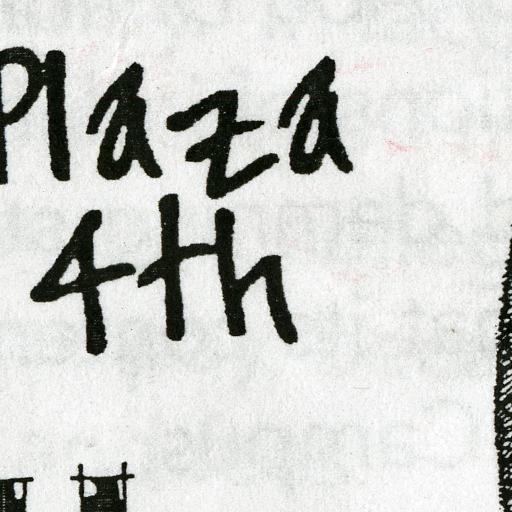 Plaza
4th